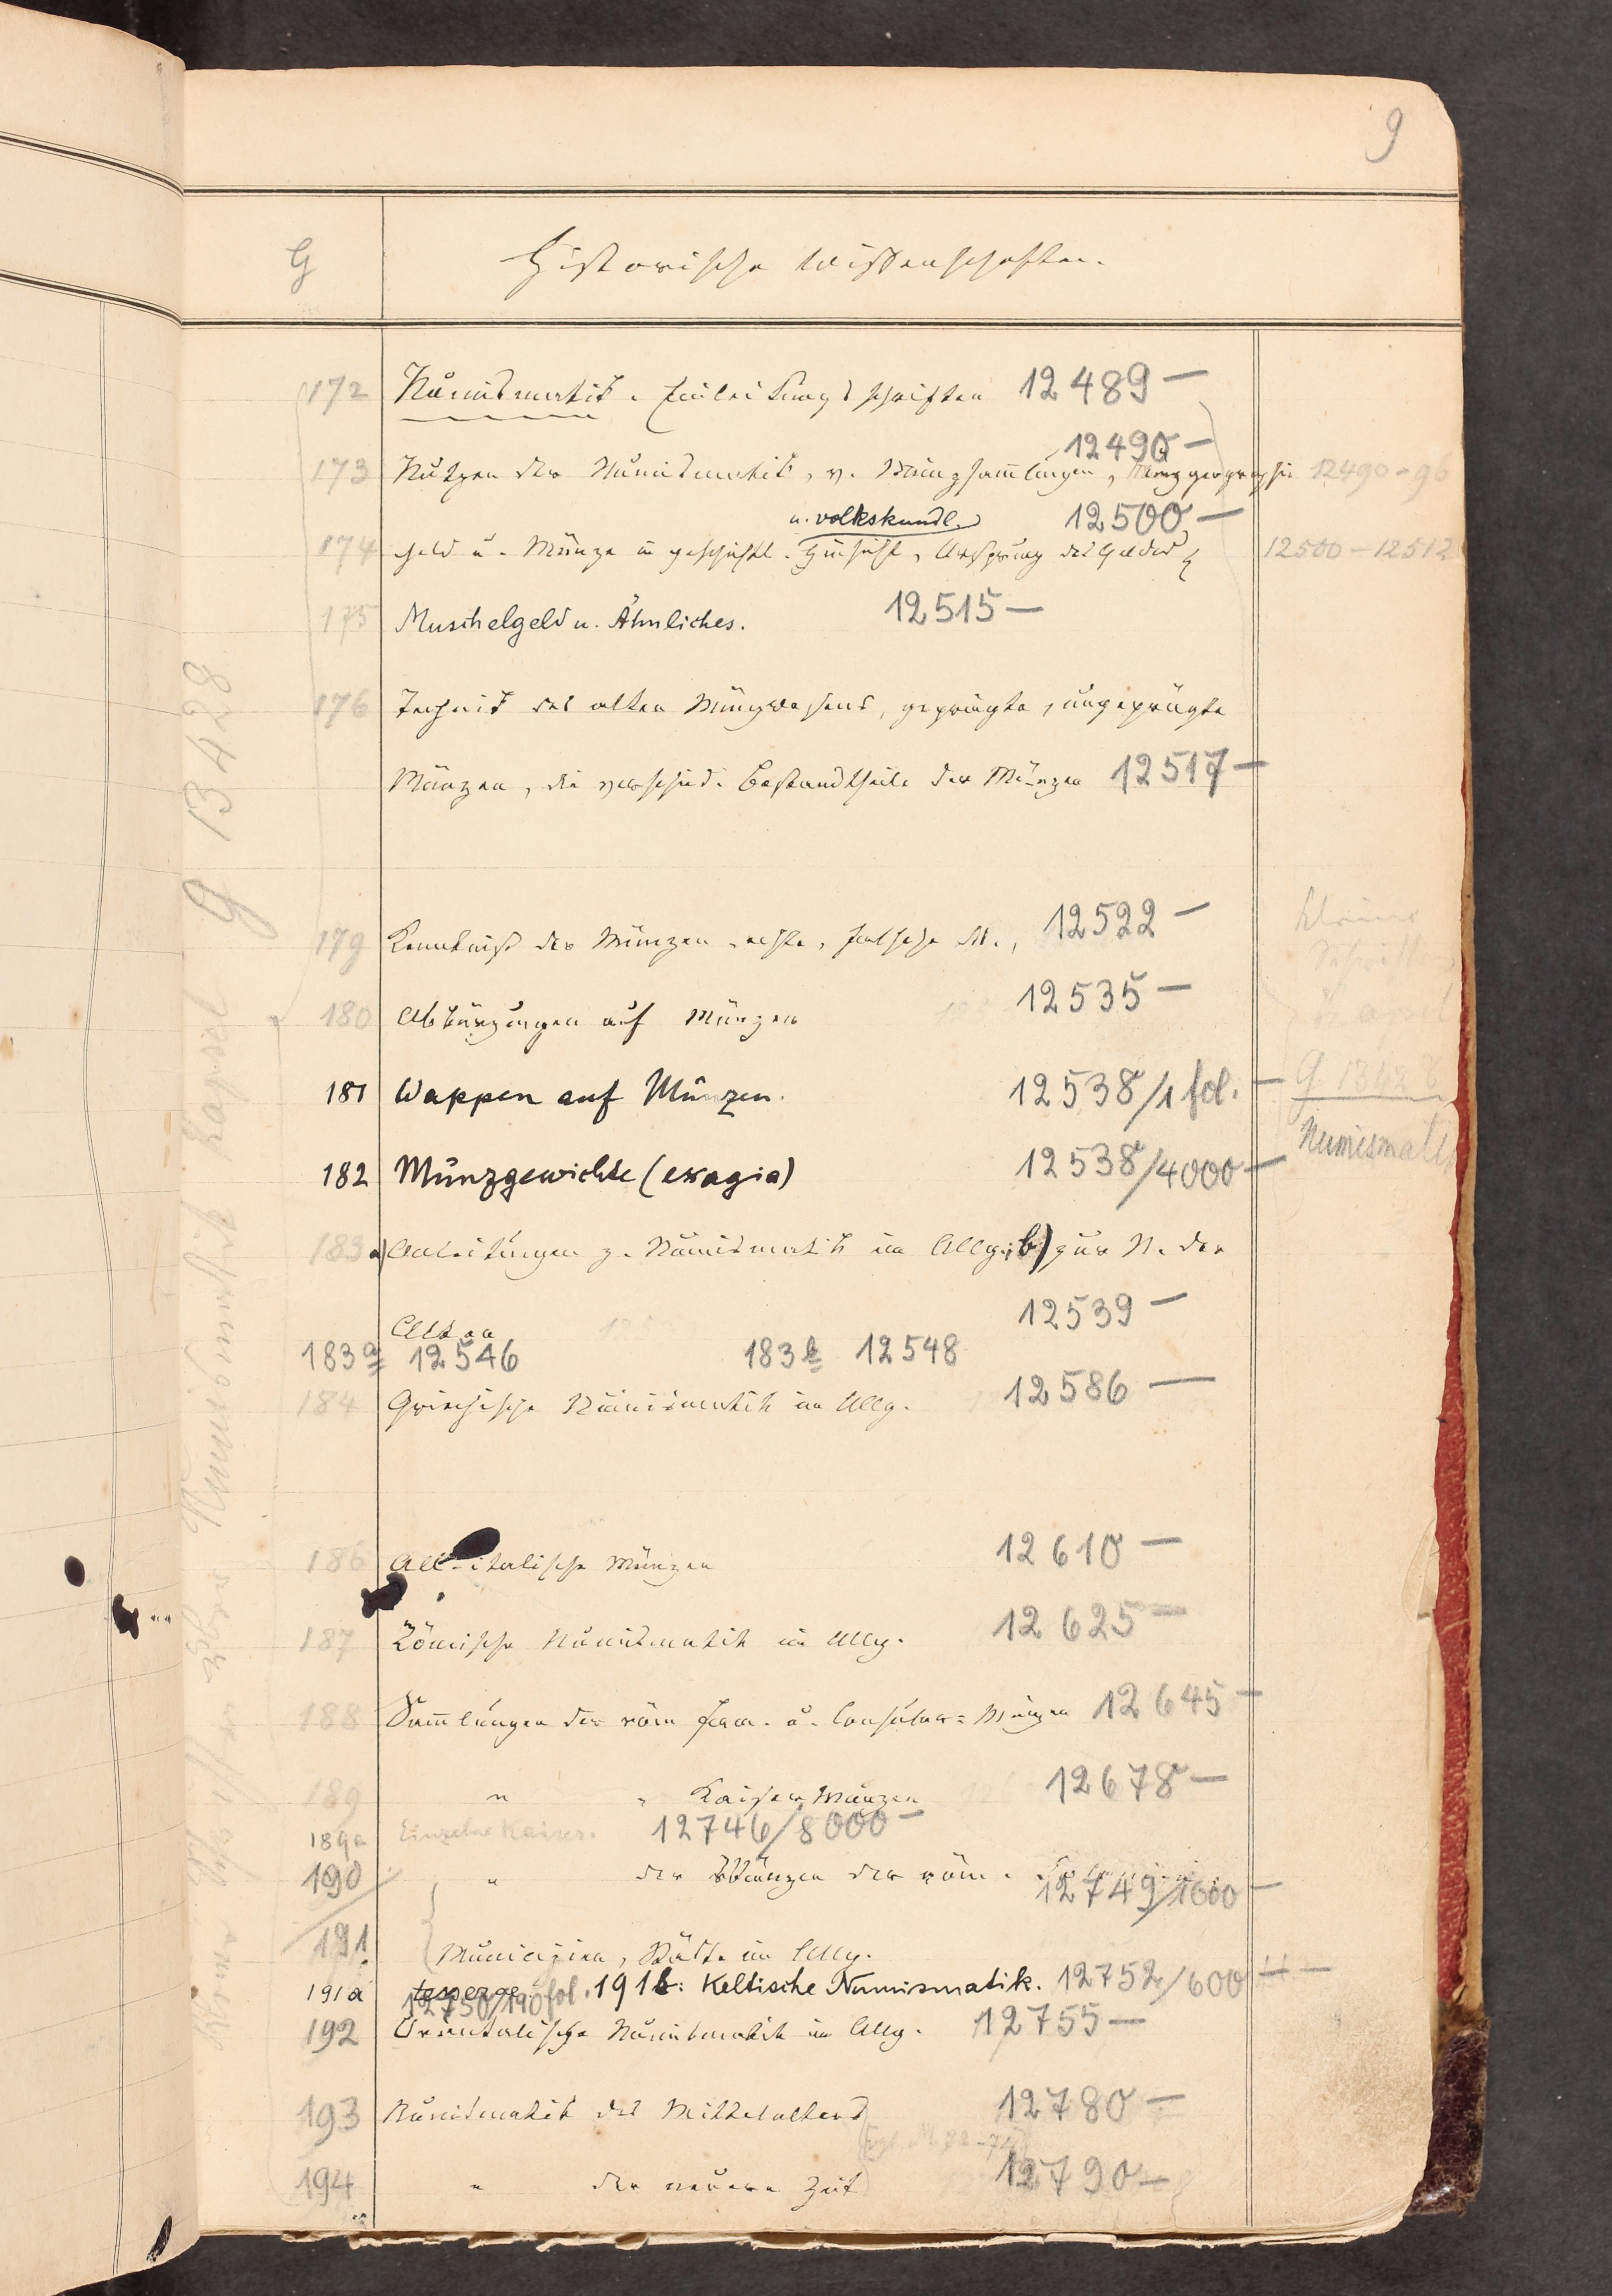 9
G Historische Wissenschaften.
172 Numismatik. Einleitungsschriften 12489 —
12490 —
173 Nutzen der Numismatik, v. Münzsammlungen, Münzgeographie 12490-96
u. volkskundl. 12500 —
174 Geld u. Münze in geschichtl. Hinsicht, Ursprung des Geldes 12500-12512
175 Muschelgeld u. Ähnliches. 12515 —
176 Technik des alten Münzwesens, geprägte, ungeprägte
Münzen, die verschied. Bestandtheile der Münzen 12517 —
179 Kenntniß der Münzen, echte, falsche M., 12522 —
kleine
Schriften
180 Abkürzungen auf Münzen 12535 —
181 Wappen auf Münzen. 12538/1 fol. — G 13428
182 Münzgewichte (exagia) 12538/4000 — Numismatik
183 a) Anleitungen z. Numismatik im Allg.; b) zur N. der
Alten 12539 —
183a 12546 183b 12548
184 Griechische Numismatik im Allg. 12586 —
186 Alt-italische Münzen 12610 —
187 Römische Numismatik im Allg. 12625 —
188 Sammlungen der röm Fam. u. Consular-Münzen 12645 —
189 " " Kaiser Münzen 12678 —
189a Einzelne Kaiser. 12746/8000 —
190 " der Münzen der röm. 12749/1000 —
191 Municipien, Städte im Allg.
191a tesserae. 191b: Keltische Numismatik. 12752/600 —
12750/190 fol.
192 Orientalische Numismatik im Allg. 12755 —
193 Numismatik des Mittelalters 12780 —
194 " der neuern Zeit 12790 —
Kleine Schriften über Numismatik Kapsel G 13428